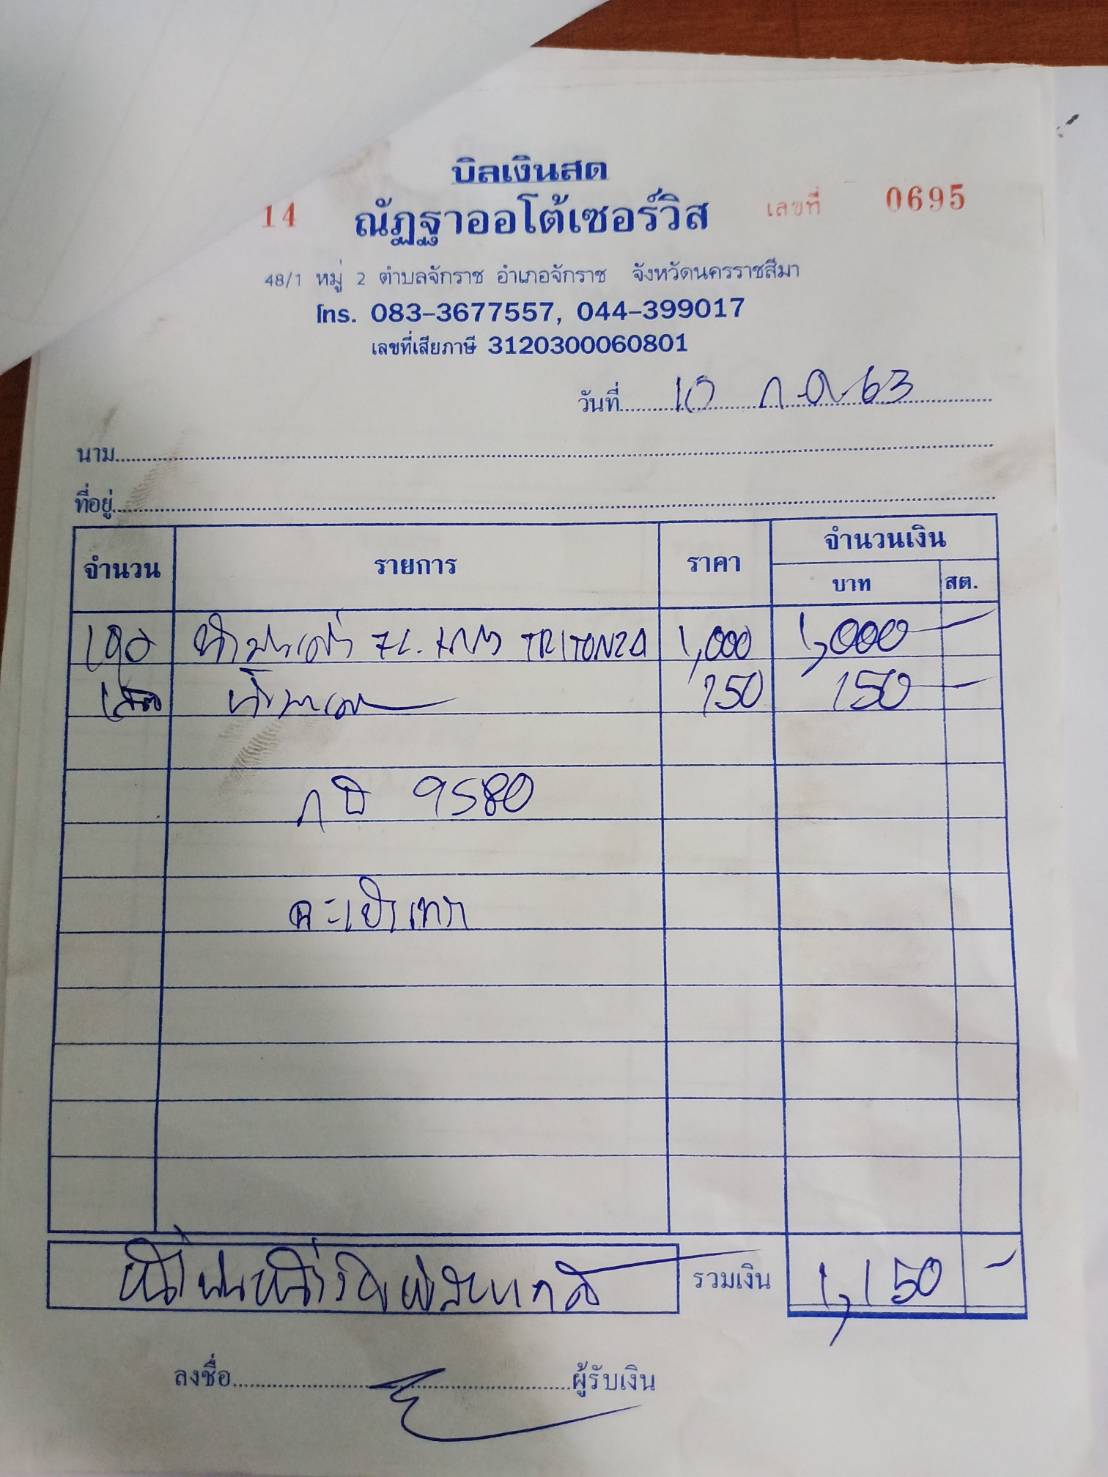 บิลเงินสด
14 ณัฏฐาออโต้เซอร์วิส เลขที่ 0695
48/1 หมู่ 2 ตำบลจักราช อำเภอจักราช จังหวัดนครราชสีมา
โทร. 083-3677557, 044-399017
เลขที่เสียภาษี 3120300060801
วันที่ 10 ก.ค. 63
นาม
ที่อยู่
จำนวน รายการ ราคา จำนวนเงิน
บาท สต.
1ชุด 7L. TRITON 1,000 1,000 -
150 150 -
9580
หนึ่งพันหนึ่งร้อยห้าสิบบาท รวมเงิน 1,150 -
ลงชื่อ ผู้รับเงิน